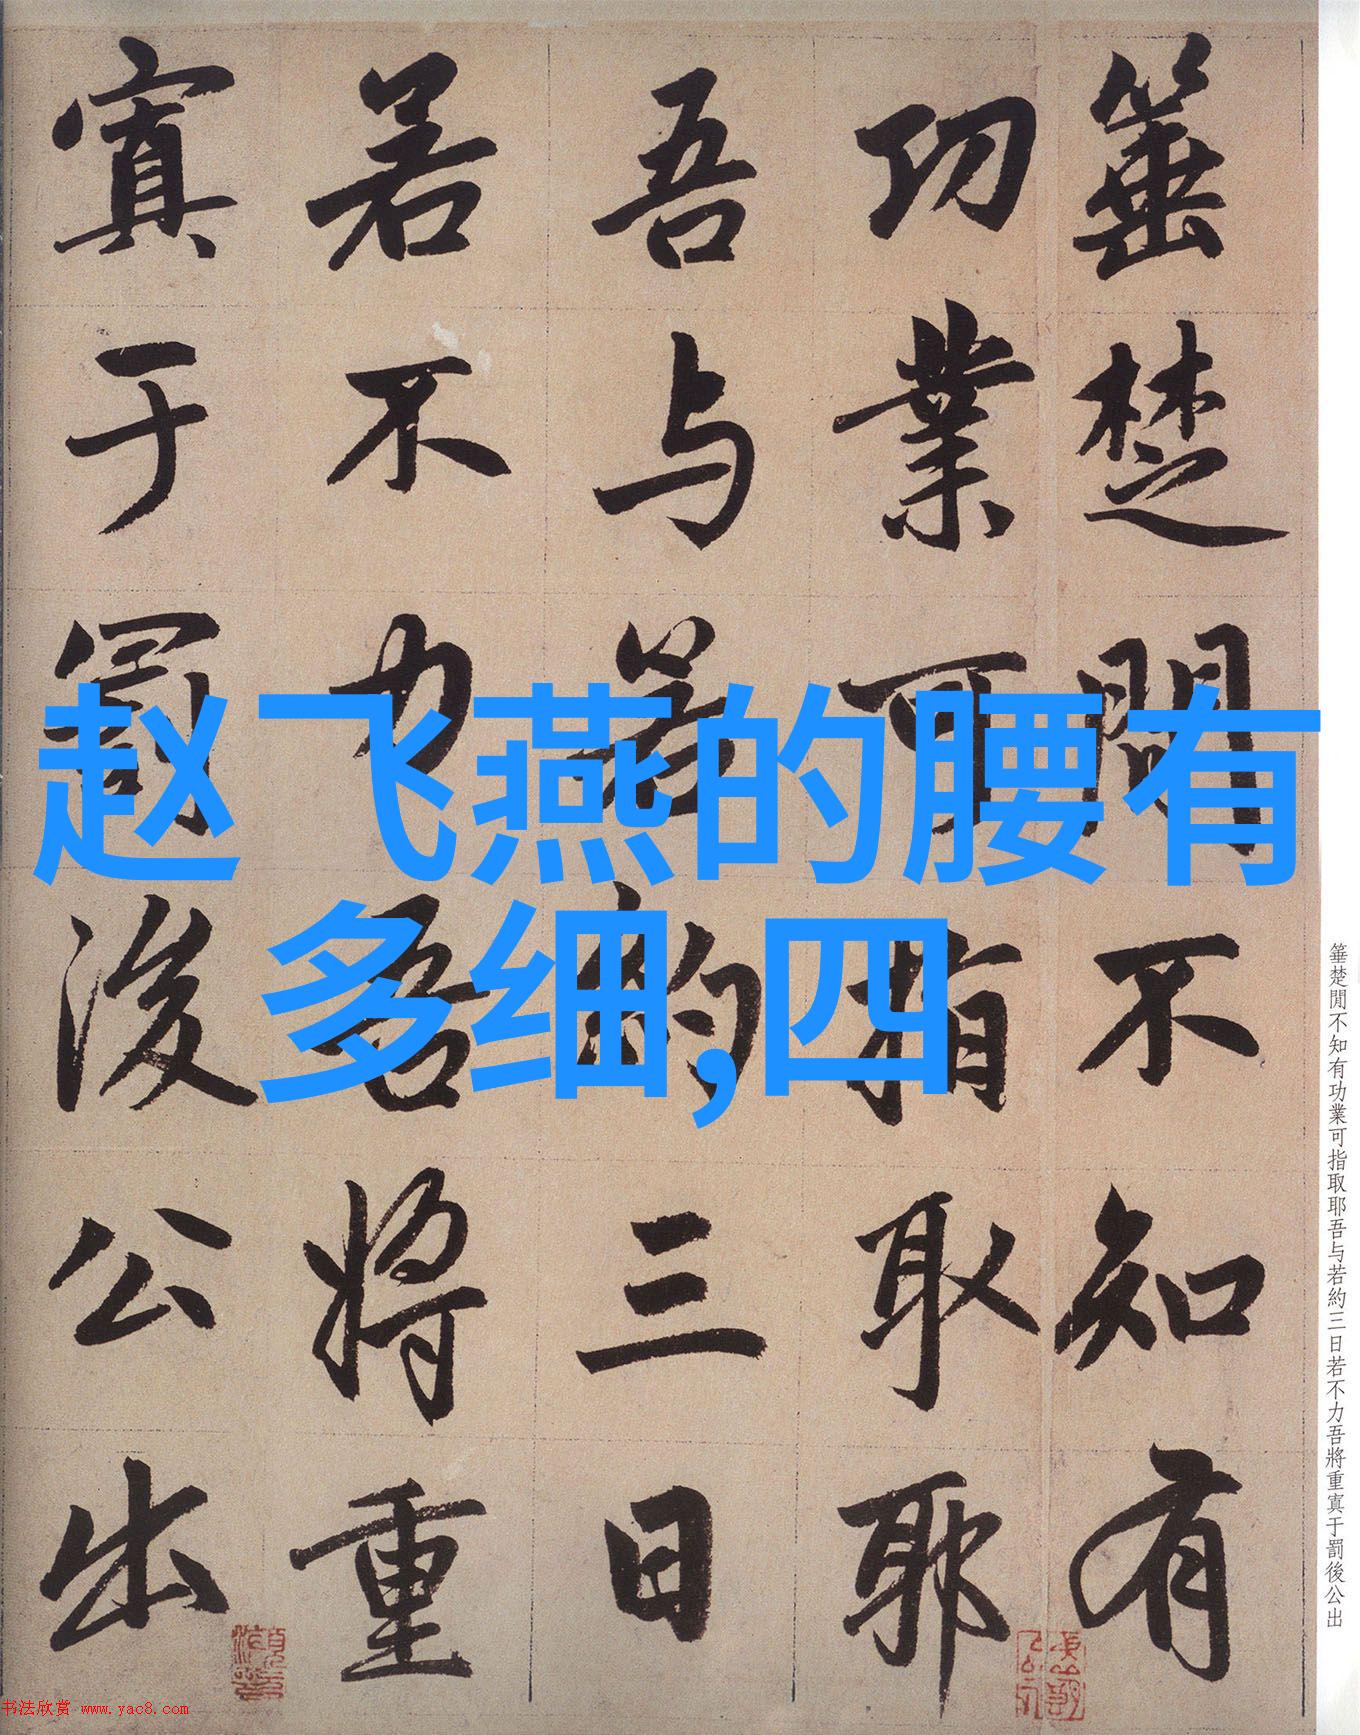 箠楚間不知有
功業可指取耶
吾与若約三日
若不力吾將重
寘于罰後公出
赵飞燕的腰有
多细,四
箠楚間不知有功業可指取耶吾与若約三日若不力吾將重寘于罰後公出
书法欣赏 www.yac8.com